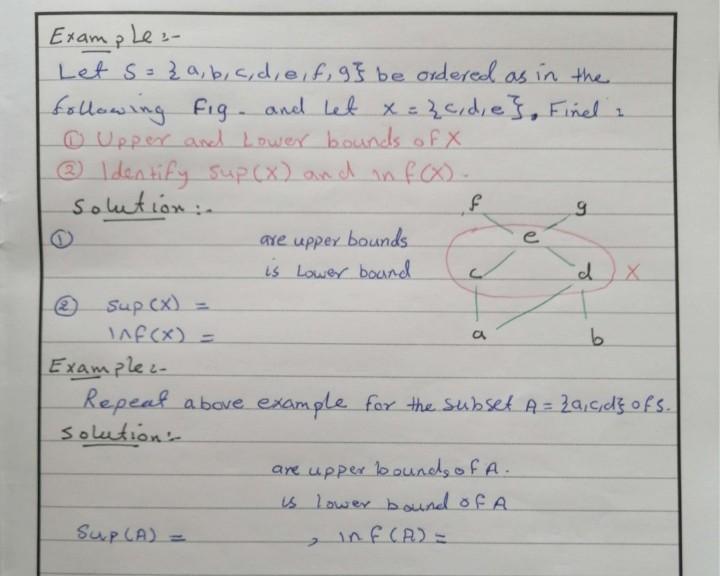 Example :-
Let S = {a, b, c, d, e, f, g} be ordered as in the
following Fig. and Let x = {c, d, e}, Find :
① Upper and Lower bounds of X
② Identify sup(X) and inf(X).
Solution :-
f g
① are upper bounds e
is Lower bound c d X
② sup(X) =
inf(X) = a b
Example :-
Repeat above example for the subset A = {a, c, d} of S.
Solution :-
are upper bounds of A.
is lower bound of A
Sup(A) = , inf(A) =